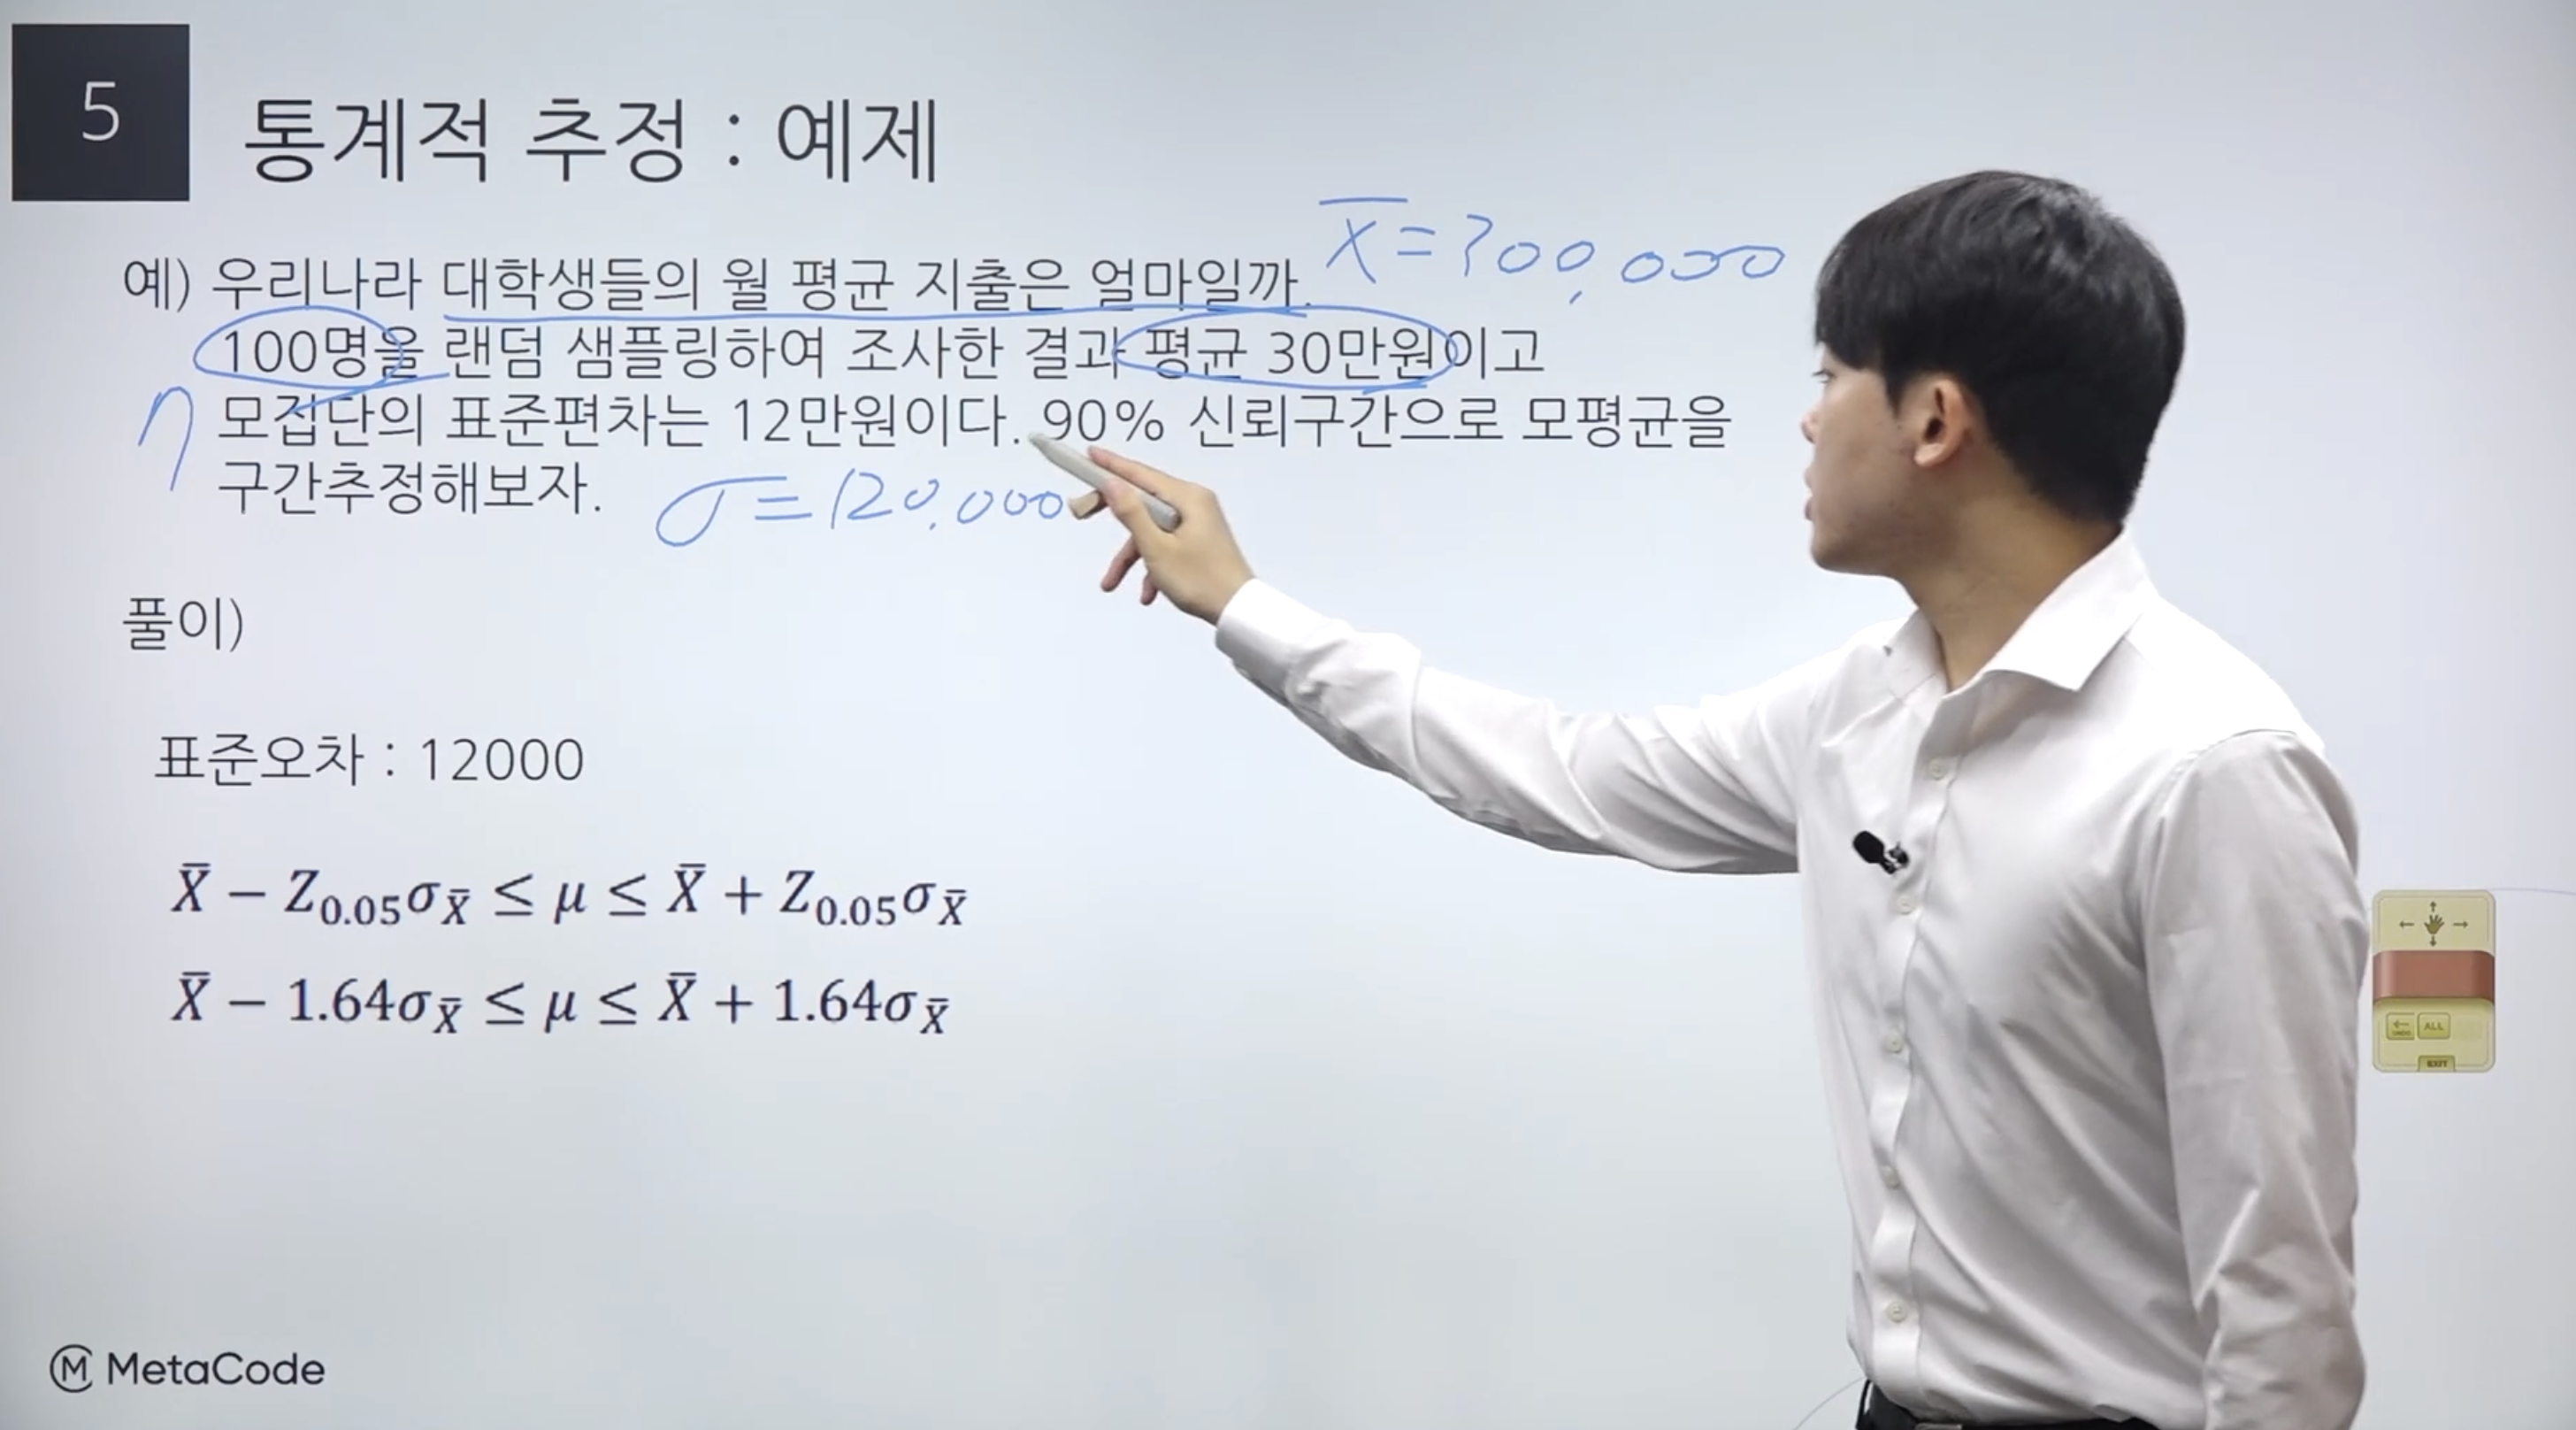 5
통계적 추정 : 예제
X̄=300,000
예) 우리나라 대학생들의 월 평균 지출은 얼마일까.
100명을 랜덤 샘플링하여 조사한 결과 평균 30만원이고
n 모집단의 표준편차는 12만원이다. 90% 신뢰구간으로 모평균을
구간추정해보자.
σ=120,000
풀이)
표준오차 : 12000
X̄ − Z₀.₀₅σ_X̄ ≤ μ ≤ X̄ + Z₀.₀₅σ_X̄
X̄ − 1.64σ_X̄ ≤ μ ≤ X̄ + 1.64σ_X̄
ALL
EXIT
M MetaCode